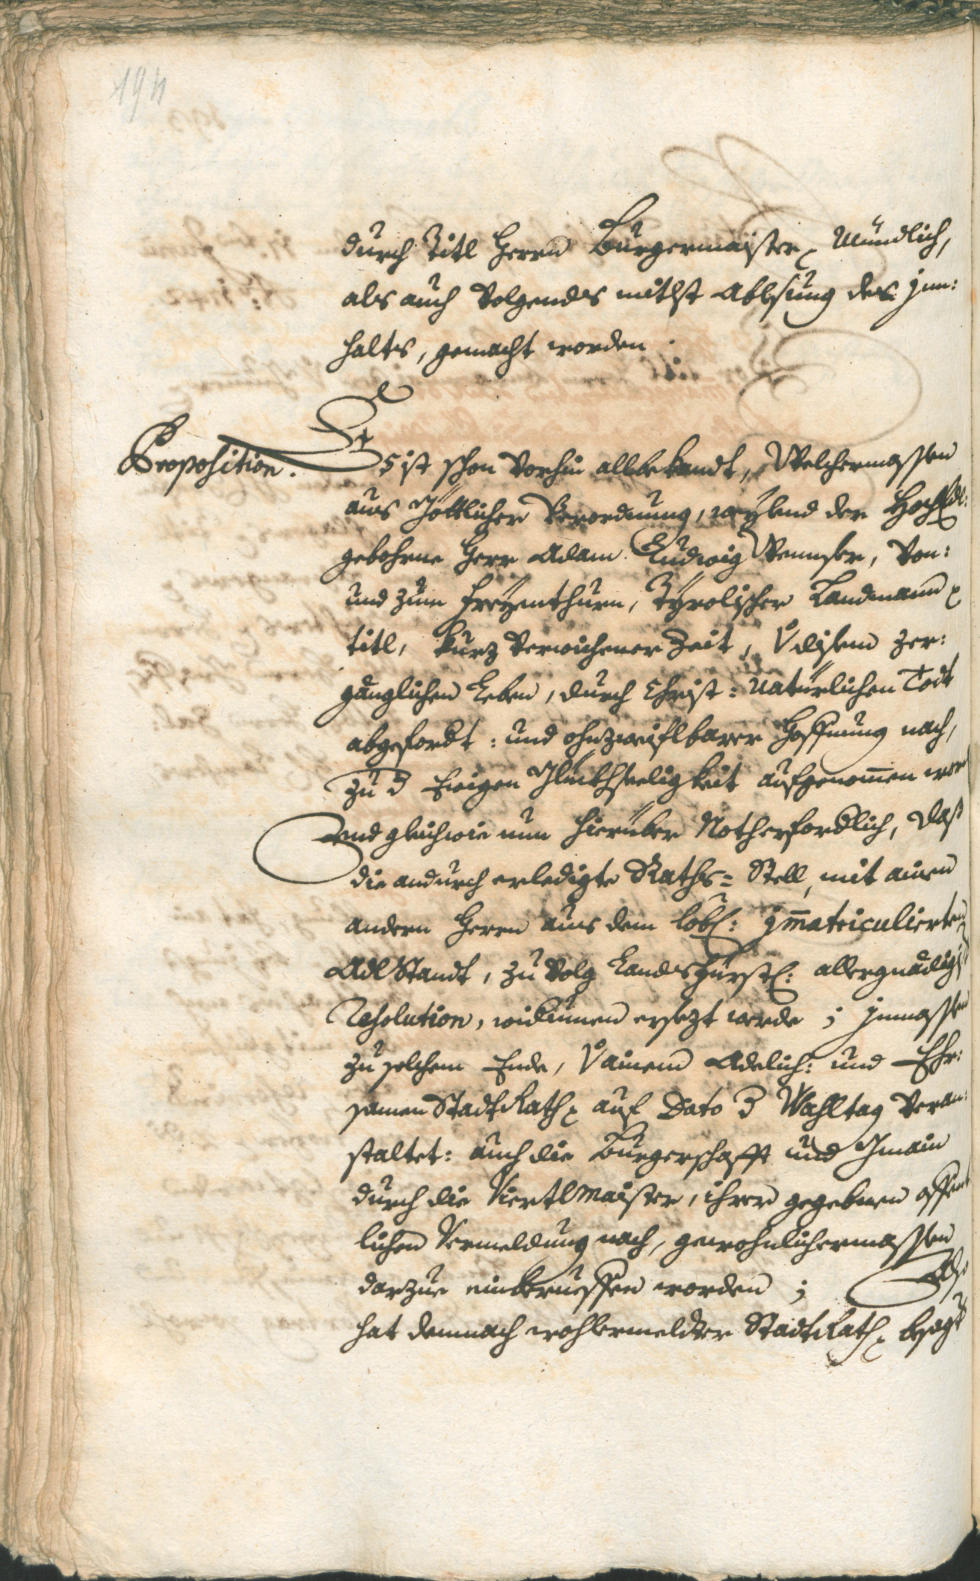 194
durch Titl Herrn Burgermaister Mündlich,
als auch Volgendts mitlst Ablesung des jnn:
halts, gemacht worden.
Proposition.
Es ist schon Vorhin allbekandt, Welchermassen
aus Göttlicher Verordnung, weylend der Hochedl:
gebohrne Herr Adam Ludwig Wenser, Von:
und zum Freyenthurn, Tyrolischer Landmann
titl, kurz Verwichener Zeit, Von disem zer:
gänglichen Leben, durch Christ: Natürlichen Todt
abgefordt: und ohnzweiflbarer Hoffnung nach,
zu d Ewigen Glückhseeligkeit aufgenomen wor
Und gleichwie nun hierüber Notherfordlich, daß
die andurch erledigte Raths= Stell, mit ainem
andern Herrn aus dem löbl: jmatriculierten
Adl Standt, zu Volg Landsfürstl: allergnädigst
Resolution, widerumen ersezt werde; jnmassen
zu solchem Ende, Von ainem Adelich: und Ehr:
samen StadtRath auf Dato d Wahltag Veran:
staltet: auch die Burgerschafft und Gmain
durch die Viertlmaister, ihrer gegebnen offent
lichen Vermeldung nach, gewohnlichermassen
darzue einberueffen worden; Als
hat demnach wohlermeldter StadtRath besagt